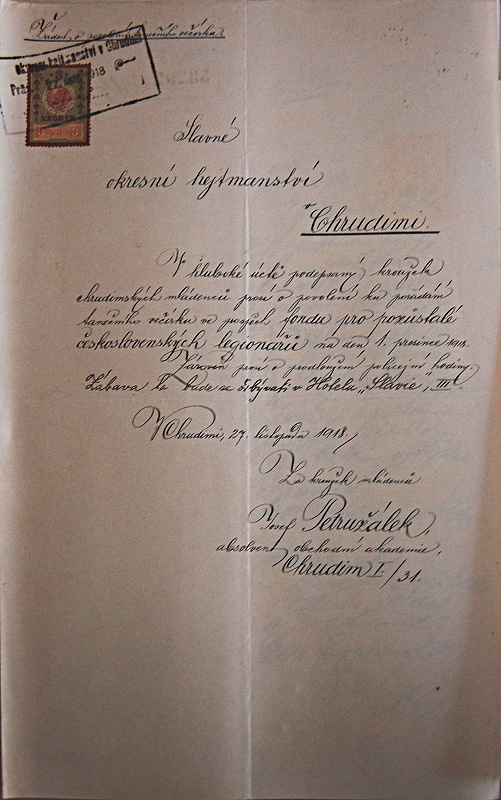 Žádost o povolení tanečního večírku.
okresní hejtmanství v Chrudimi
27. 1918
KRONEN
Slavné
okresní hejtmanství
v Chrudimi.
V hluboké úctě podepsaný kroužek
chrudimských mládenců prosí o povolení ku pořádání
tanečního večírku ve prospěch fondu pro pozůstalé
československých legionářů na den 1. prosince 1918.
Zároveň prosí o prodloužení policejní hodiny.
Zábava ta bude se odbývati v Hotelu „Slavie“, III
V Chrudimi, 27. listopadu 1918.
Za kroužek mládenců
Josef Petružálek,
absolvent obchodní akademie,
Chrudim I/31.